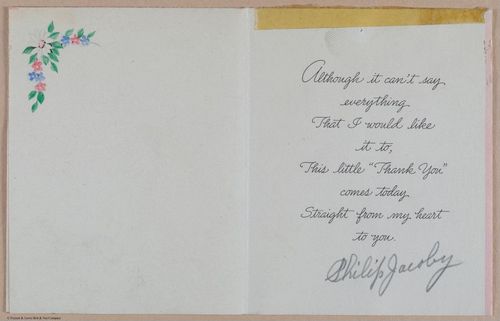 Although it can't say
everything
That I would like
it to,
This little "Thank You"
comes today
Straight from my heart
to you.
Philip Jacoby